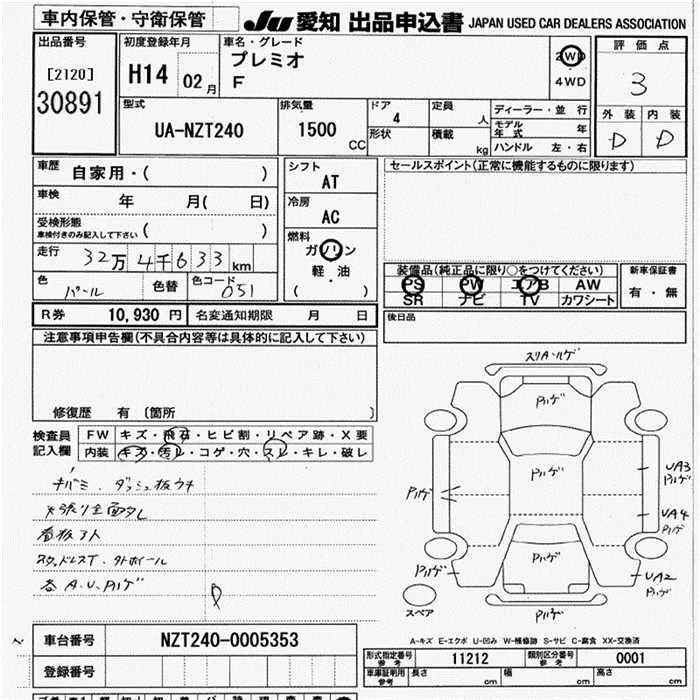 車内保管・守衛保管
JU 愛知 出品申込書 JAPAN USED CAR DEALERS ASSOCIATION
出品番号
[2120]
30891
初度登録年月
H14 02 月
車名・グレード
プレミオ
F
2WD
4WD
評価点
3
外装 内装
D D
型式
UA-NZT240
排気量
1500 CC
ドア
4
形状
定員
人
積載
kg
ディーラー・並行
モデル年式 年
ハンドル 左・右
車歴 自家用・( )
車検 年 月( 日)
受検形態
車検付きのみ記入して下さい ( )
走行 32万4千633 km
色 パール 色替 色コード 051
シフト
AT
冷房
AC
燃料
ガソリン
軽・油
( )
セールスポイント(正常に機能するものに限ります)
装備品(純正品に限り○をつけてください)
PS PW エアB AW
SR ナビ TV カワシート
新車保証書
有・無
R券 10,930 円 名変通知期限 月 日
後日品
注意事項申告欄(不具合内容等は具体的に記入して下さい)
修復歴 有 〔箇所 〕
検査員
記入欄
FW キズ・飛石・ヒビ割・リペア跡・X要
内装 キズ・汚レ・コゲ・穴・スレ・キレ・破レ
キバミ. ダッシュ板ウキ
看板アト
スタッドレスT. 外ホイール
各 A.U.Pハゲ
スリキ・ハゲ
Pハゲ
Pハゲ
Pハゲ
Pハゲ
Pハゲ
Pハゲ
UA3
Pハゲ
UA4
UA2
Pハゲ
スペア
A-キズ E-エクボ U-凹み W-補修跡 S-サビ C-腐食 XX-交換済
車台番号 NZT240-0005353
登録番号
形式指定番号
参考
11212
類別区分番号
参考
0001
車庫証明用
参考
長さ cm 幅 cm 高さ cm